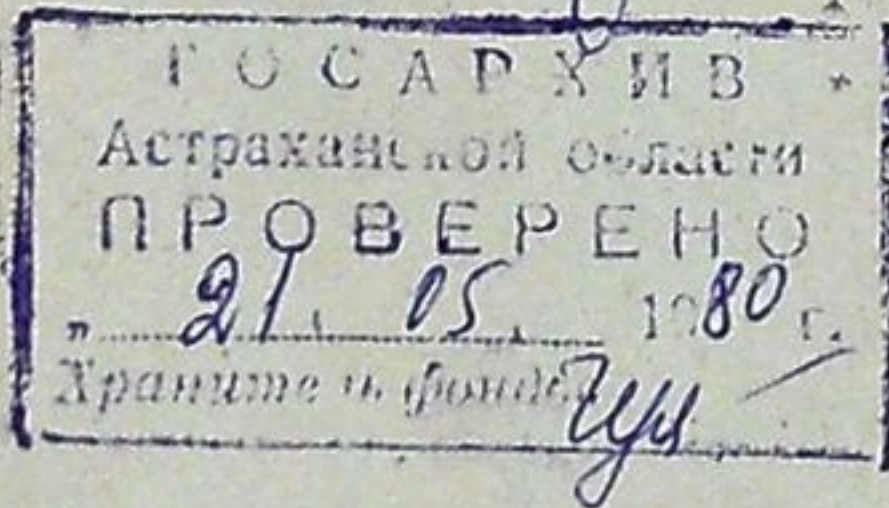 ГОСАРХИВ
Астраханской области
ПРОВЕРЕНО
„ 21. 05. 1980 г.
Хранитель фондов